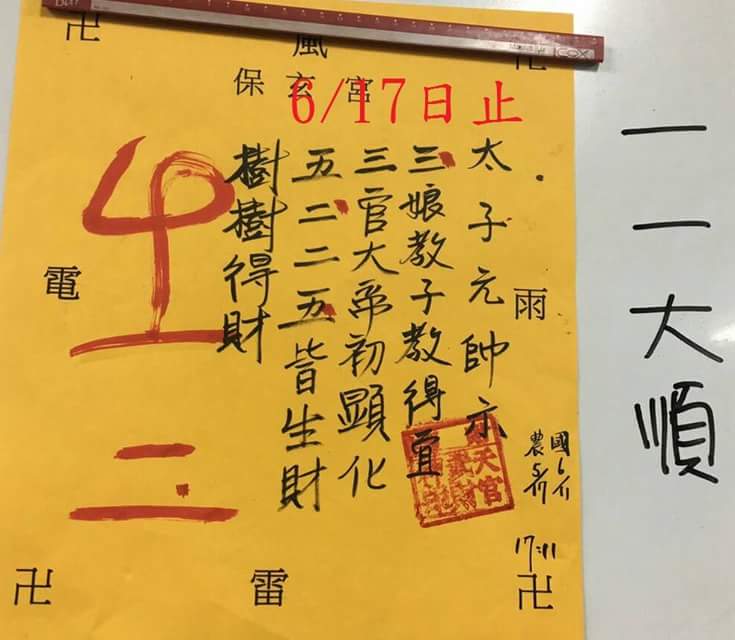 卍 風 卍
保玄宮
6/17日止
太子元帥示
三娘教子教得宜
三官大帝初顯化
五二二五皆生財
樹樹得財
電
雨
二
17:11
卍 雷 卍
一一大順